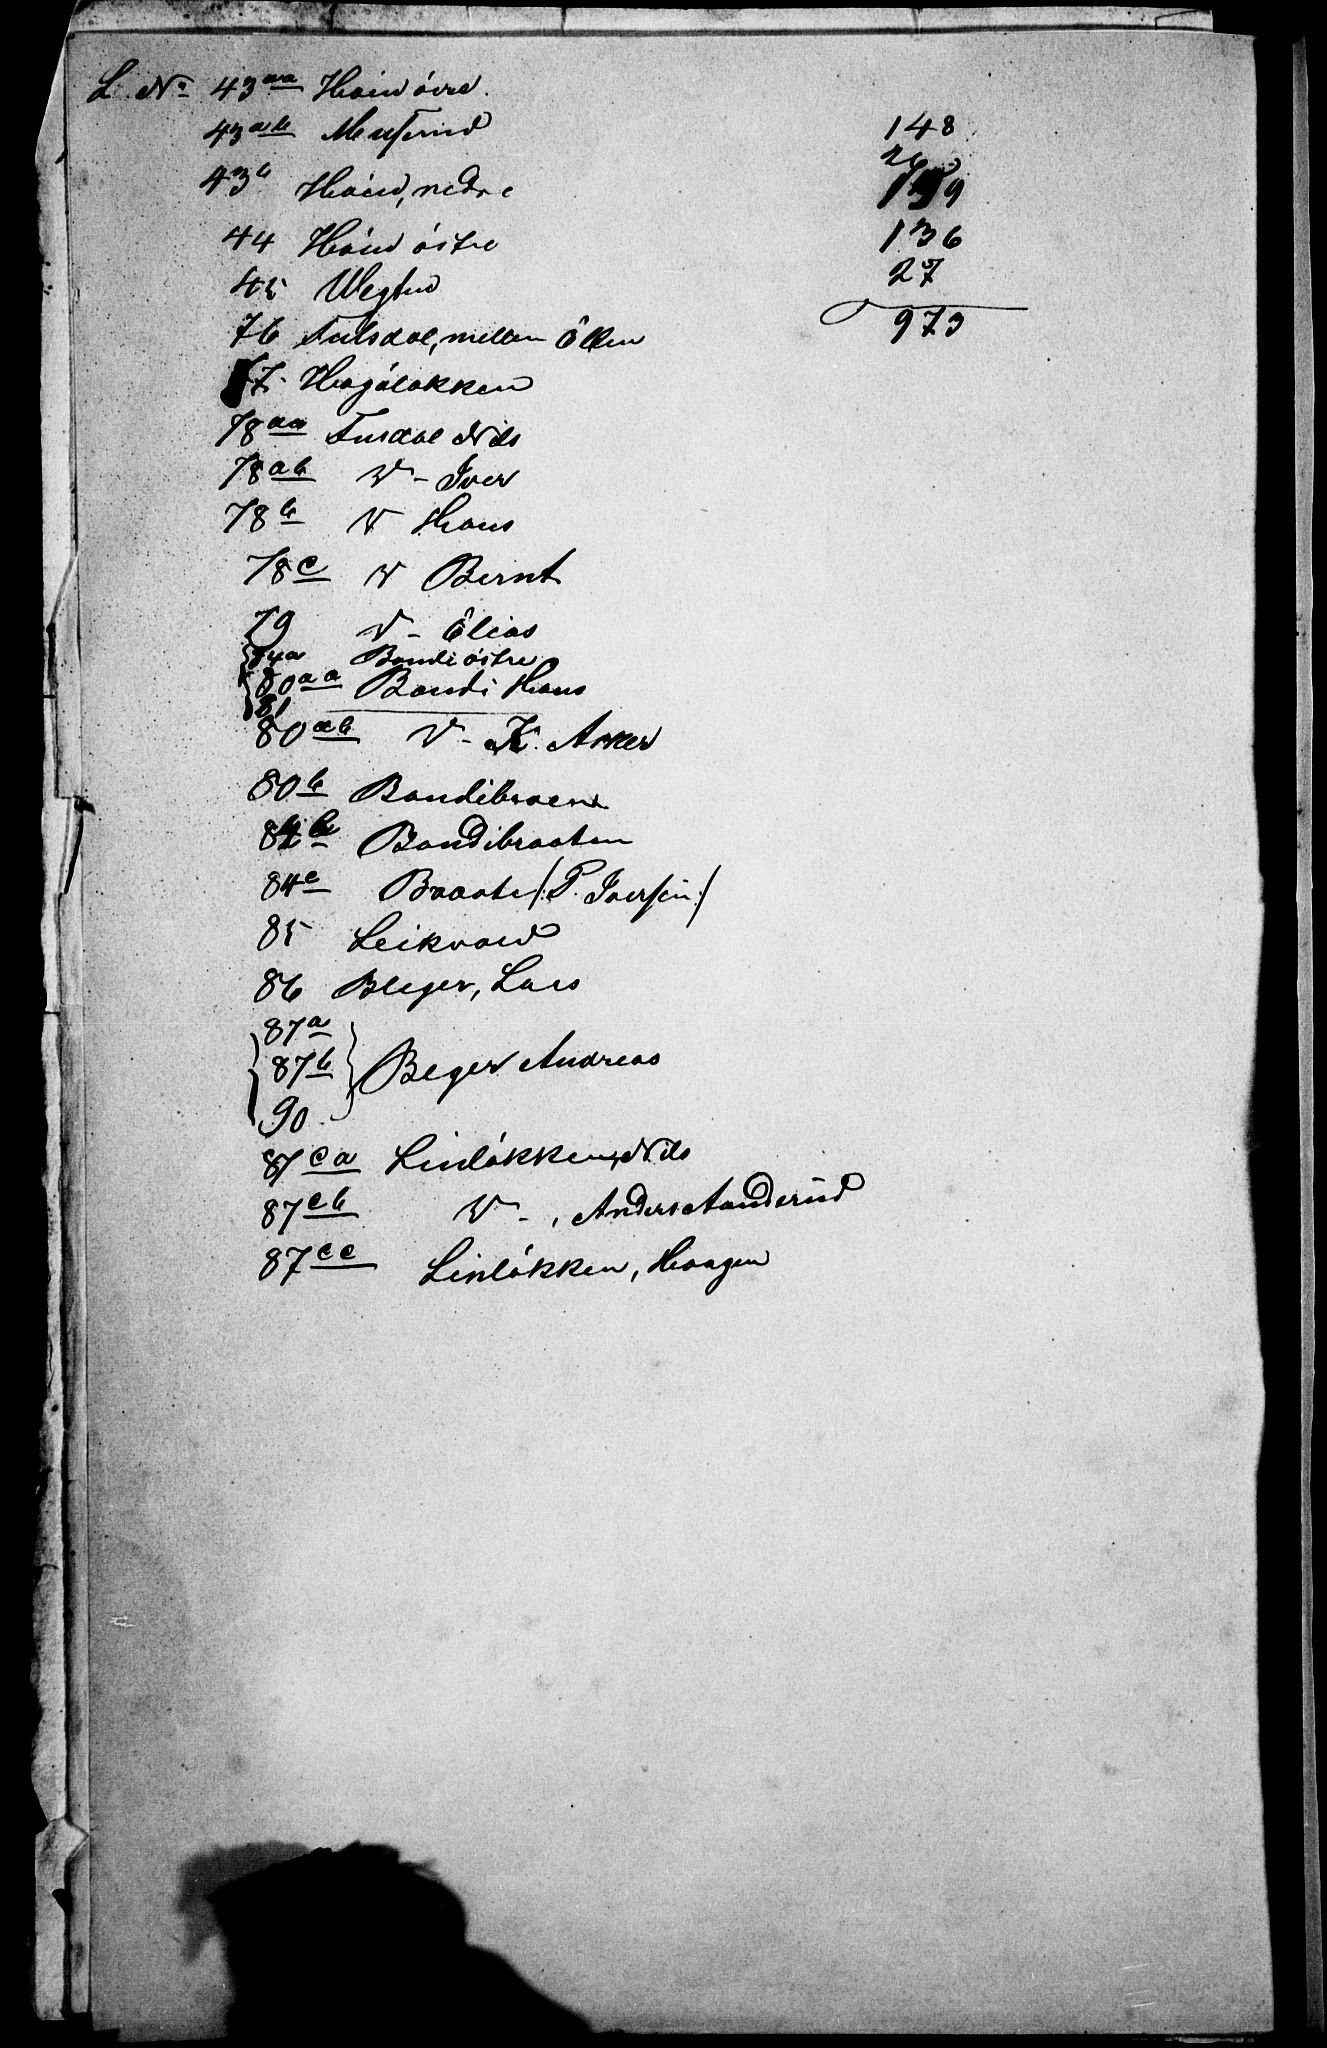 L. No 43aa Haird övre.
43ab Meuserud 148
43b Haird, nedre 139
44 Haird östre 136
45 Wegstad 27
76 Tulsdal, mellem Ellen 973
77. Hagalökken
78aa Tusdal Nils
78ab " - Iver
78b " Hans
78c " Bernt
79 " - Elias
84a Bondi östre
80aa Bondi Hans
81
80ab " - K. Asker
80b Bondibraaen
84b Bondibraaten
84c Braate /: P. Iversen :/
85 Leikvold
86 Bleger, Lars
87a
87b Beger Andreas
90.
87ca Linlökken, Nils
87cb " - , Anders Aanderud
87cc Linlökken, Haagen